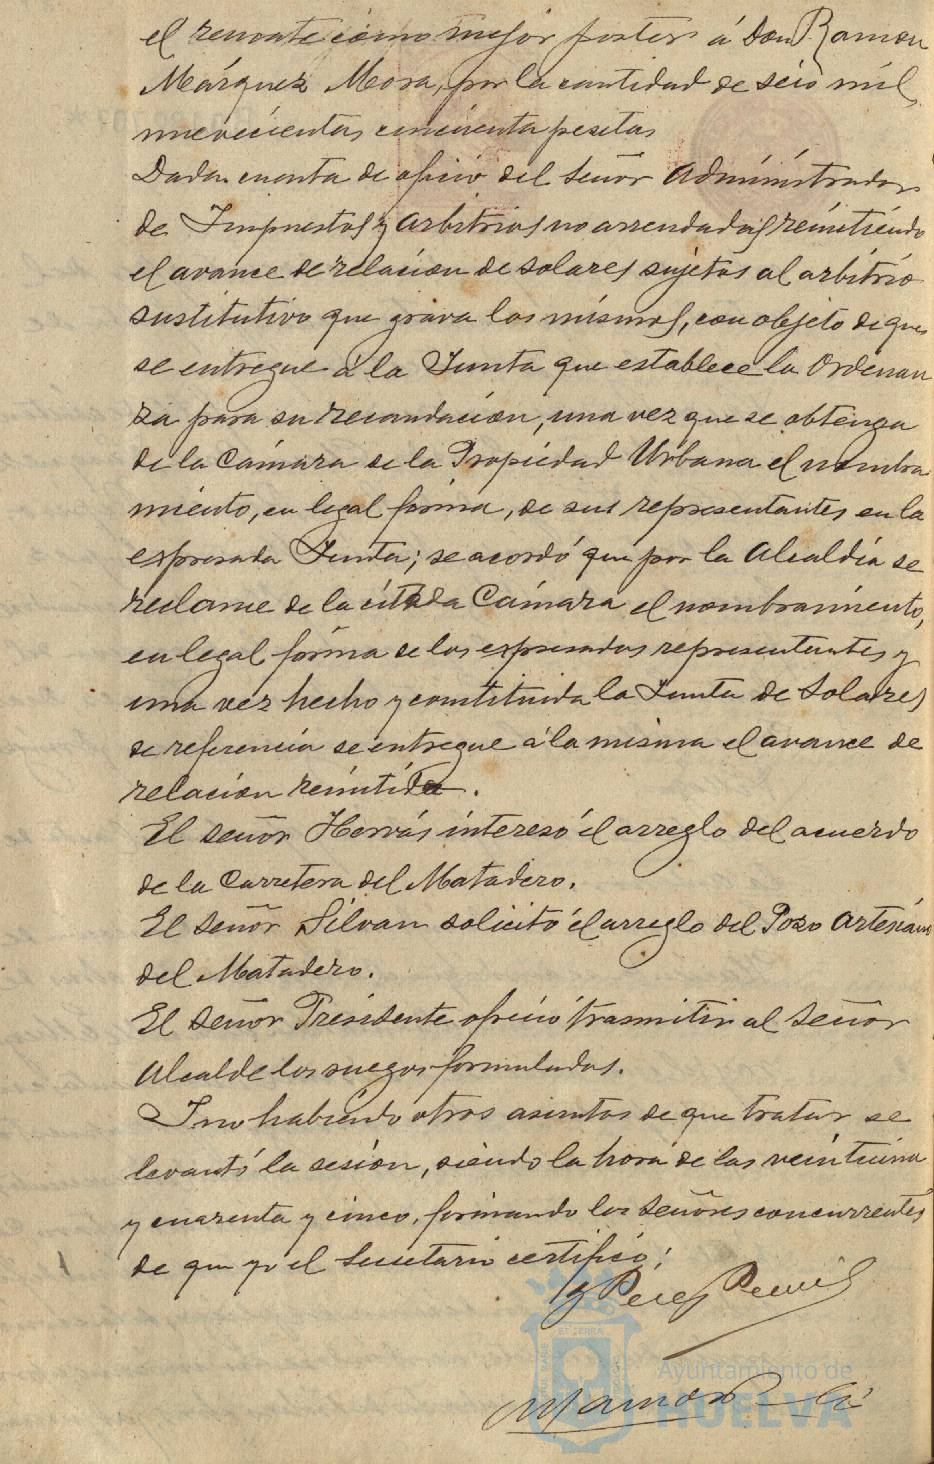 el remate como mejor postor á Don Ramon
Márquez Mora, por la cantidad de seis mil
nuevecientas cincuenta pesetas
Dada cuenta de oficio del Señor Administrador
de Impuestos y Arbitrios no arrendados remitiendo
el avance de relacion de solares sujetos al arbitrio
sustitutivo que grava los mismos, con objeto de que
se entregue á la Junta que establece la Ordenan
za para su recaudacion, una vez que se obtenga
de la Cámara de la Propiedad Urbana el nombra
miento, en legal forma, de sus representantes en la
expresada Junta; se acordó que por la Alcaldía se
reclame de la citada Cámara el nombramiento,
en legal forma de los expresados representantes y
una vez hecho y constituida la Junta de Solares
de referencia se entregue á la misma el avance de
relacion remitida.
El señor Hervás interesó el arreglo del acuerdo
de la Carretera del Matadero.
El Señor Silvan solicitó el arreglo del Pozo Artesiano
del Matadero.
El Señor Presidente ofreció trasmitir al Señor
Alcalde los ruegos formulados.
I no habiendo otros asuntos de que tratar se
levantó la sesion, siendo la hora de las veintiuna
y cuarenta y cinco, firmando los Señores concurrentes
de que yo el Secretario certifico:
Perez
Ayuntamiento de
HUELVA